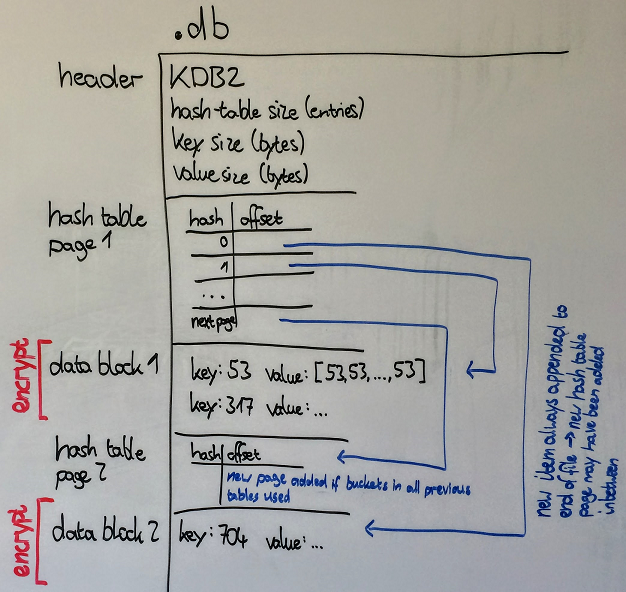 .db
header
KDB2
hash-table size (entries)
key size (bytes)
value size (bytes)
hash table
page 1
hash offset
0
1
...
next page
encrypt
data block 1
key: 53 value: [53,53,...,53]
key: 317 value: ...
hash table
page 2
hash offset
new page added if buckets in all previous
tables used
encrypt
data block 2
key: 704 value: ...
new item always appended to
end of file → new hash table
page may have been added
inbetween